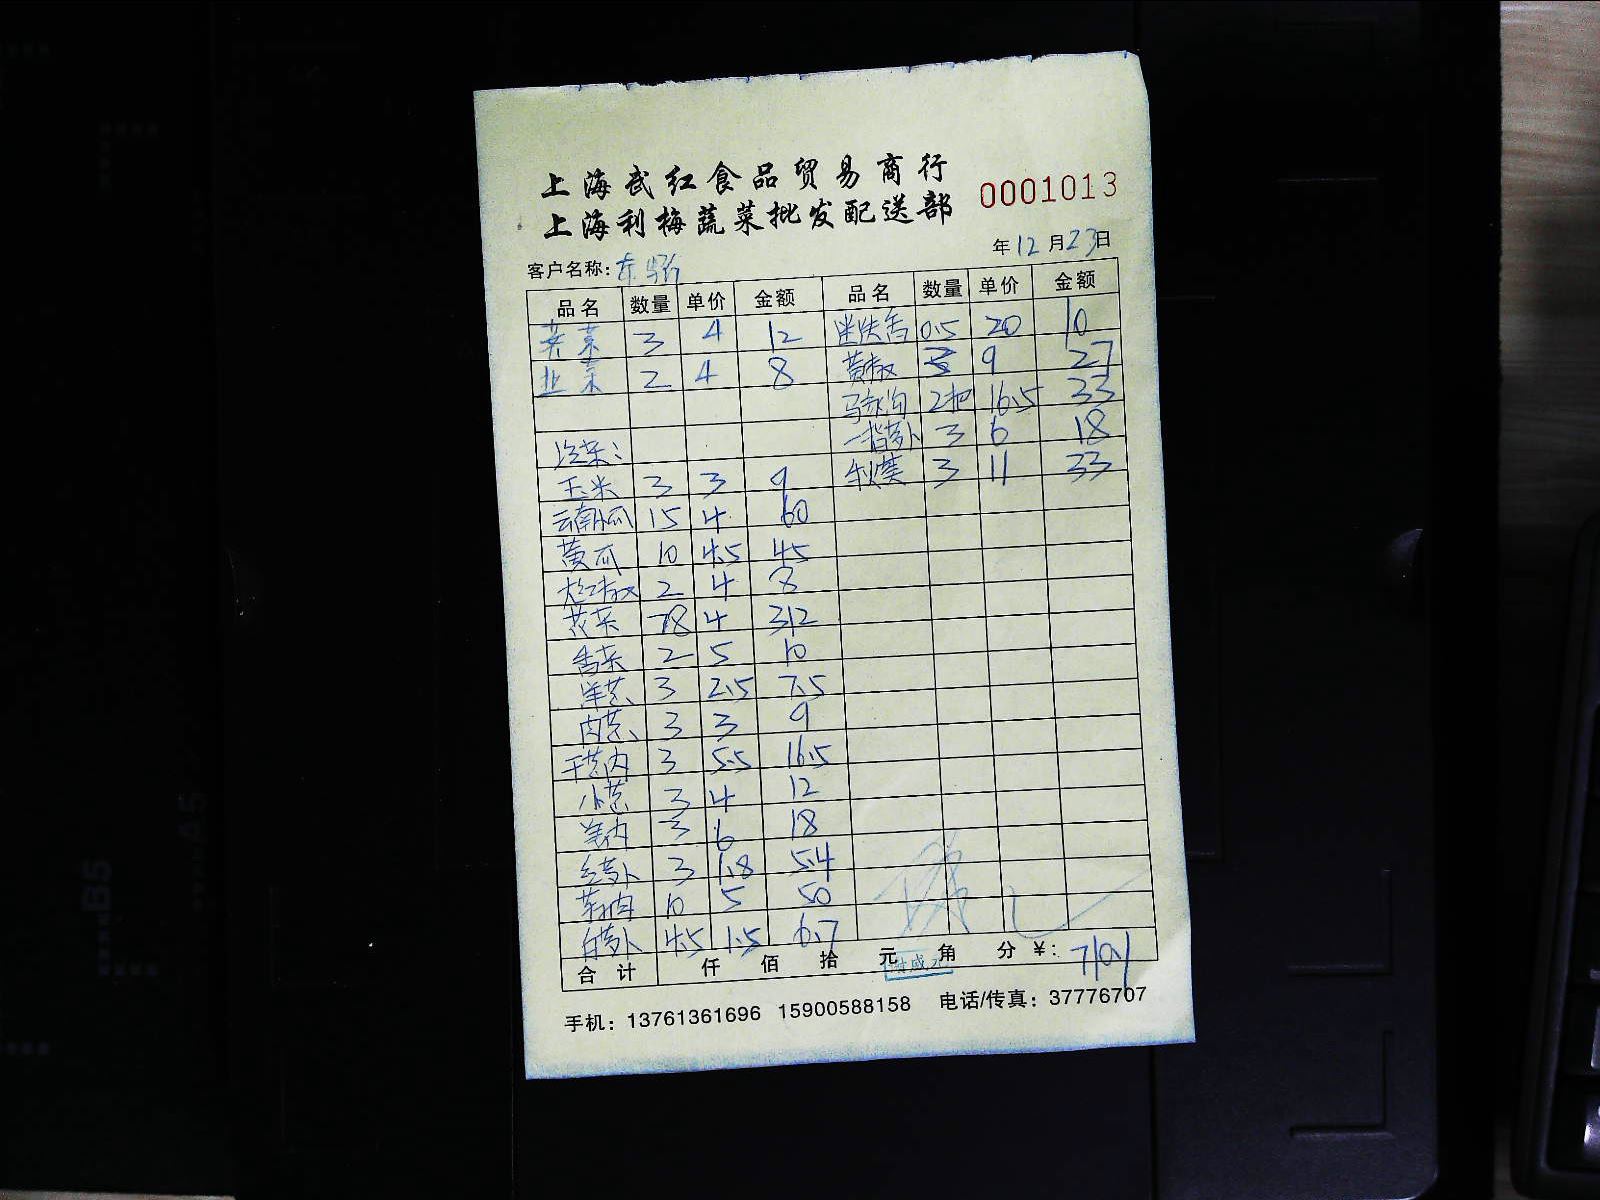 上海武红食品贸易商行
上海利梅蔬菜批发配送部
0001013
年12月23日
客户名称:
品名 数量 单价 金额 品名 数量 单价 金额
菜 3 4 12 迷迭香 0.5 20 10
韭菜 2 4 8 黄椒 3 9 27
2把 16.5 33
冷菜: 一指萝卜 3 6 18
玉米 3 3 9 秋葵 3 11 33
云南小瓜 15 4 60
黄瓜 10 4.5 45
大红椒 2 4 8
花菜 78 4 312
香菜 2 5 10
洋葱 3 2.5 7.5
3 3 9
3 5.5 16.5
小葱 3 4 12
3 6 18
红萝卜 3 1.8 5.4
10 5 50
白萝卜 4.5 1.5 6.7
合计 仟 佰 拾 元 角 分 ¥: 710.1
手机: 13761361696 15900588158 电话/传真: 37776707